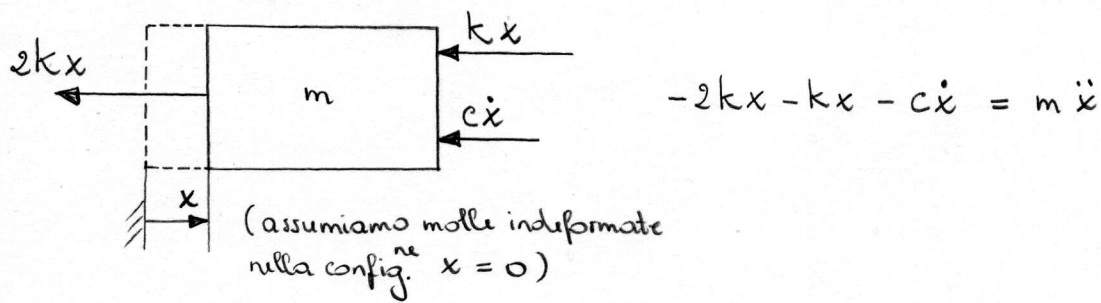 kx
2kx
m
-2kx - kx - cẋ = mẍ
cẋ
x
(assumiamo molle indeformate
nella config.ne x = 0)